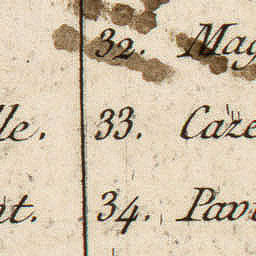 32. Mag
lle. 33. Caze
nt. 34. Pavi